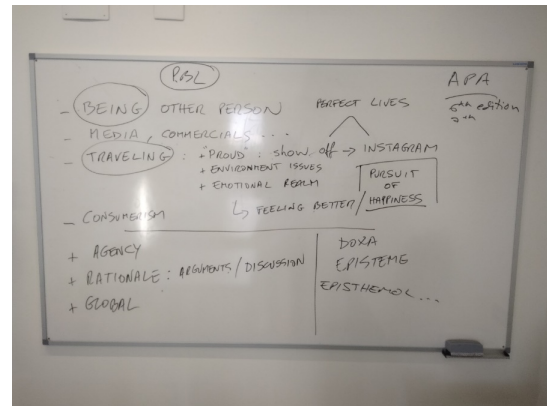 PBL
APA
6th edition
7th
- BEING OTHER PERSON
PERFECT LIVES
- MEDIA, COMMERCIALS ...
- TRAVELING : + "PROUD" : show off → INSTAGRAM
+ ENVIRONMENT ISSUES
+ EMOTIONAL REALM
↳ FEELING BETTER /
PURSUIT
OF
HAPPINESS
- CONSUMERISM
+ AGENCY
+ RATIONALE : ARGUMENTS / DISCUSSION
+ GLOBAL
DOXA
EPISTEME
EPISTHEMOL...